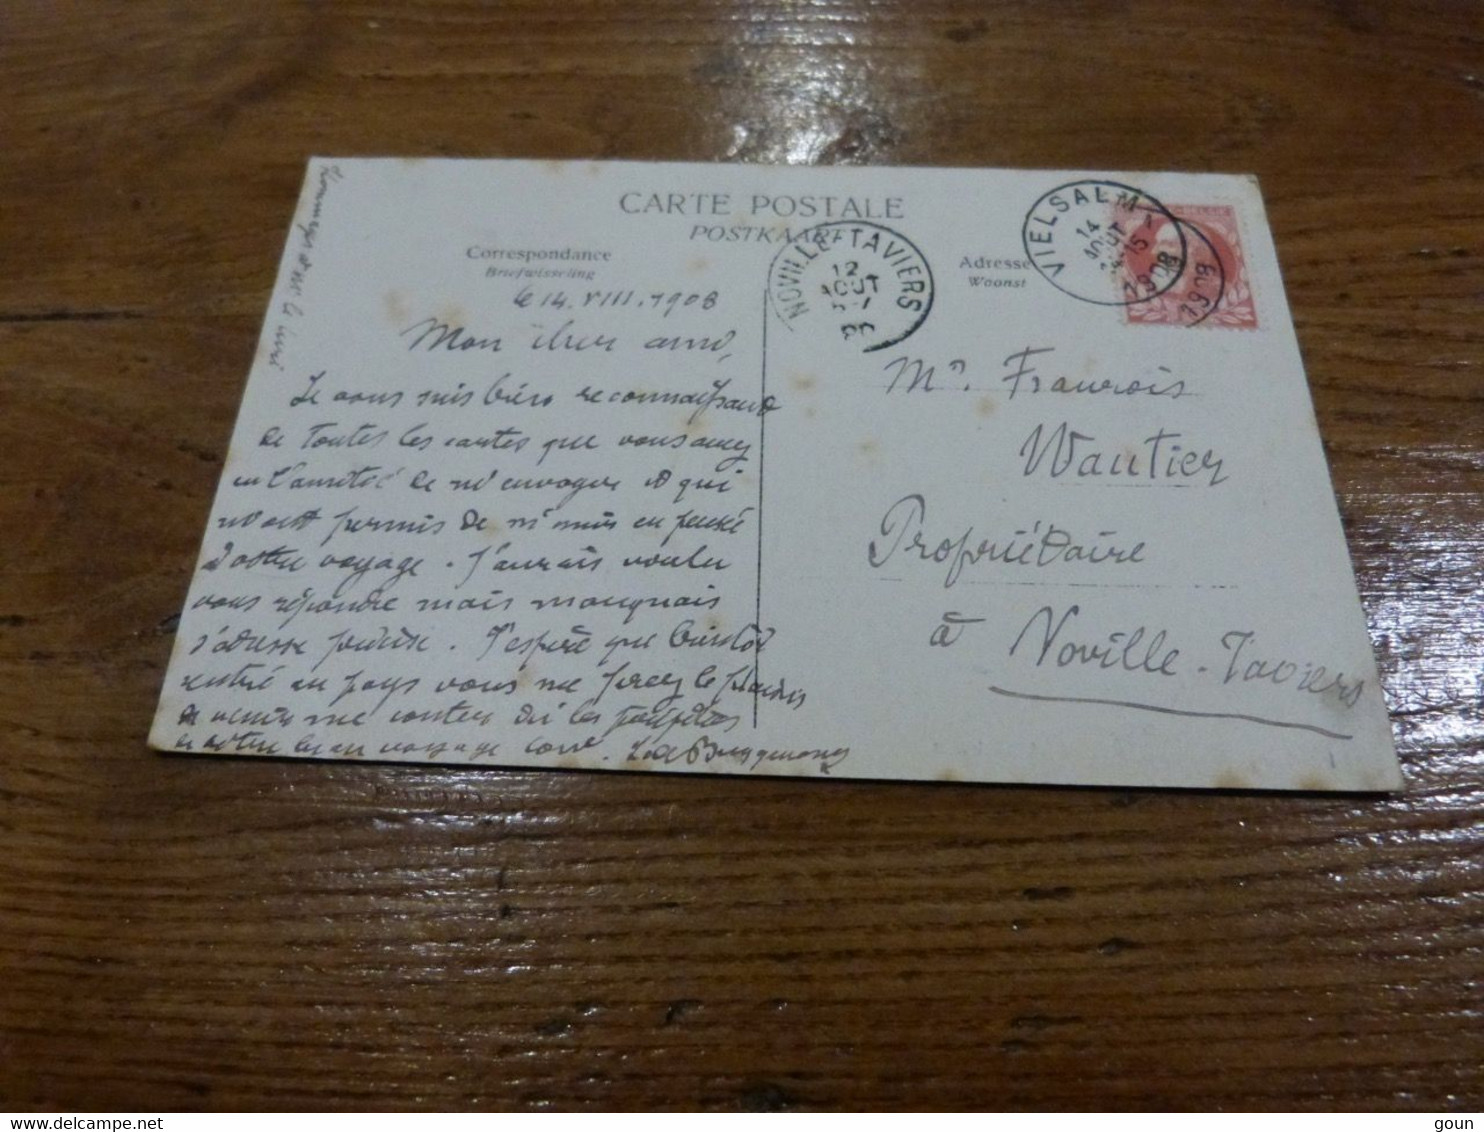 CARTE POSTALE
POSTKAART
Correspondance
Briefwisseling
Adresse
Woonst
VIELSALM
14
AOUT
1908
1908
NOVILLE-TAVIERS
12
AOUT
le 14.VIII.1908
Mon cher ami,
Je vous suis bien reconnaissant
de toutes les cartes que vous avez
eu l'amitié de m'envoyer et qui
m'ont permis de suivre en pensée
votre voyage. J'aurais voulu
vous répondre mais manquais
d'adresse précise. J'espère que bientôt
rentré au pays vous me ferez le plaisir
de venir me conter les
de votre beau voyage
Mr. François
Wautier
Propriétaire
à Noville-Taviers
goun